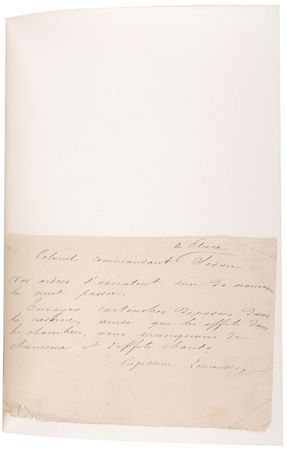 Colonel commandant Sedan
Vos ordres s'exécutent rien de nouveau
la nuit passée.
Envoyer cartouches déposées dans
la caserne, ainsi que les effets dans
les chambres, nous manquons de
chaussures et d'effets chauds
Capitaine